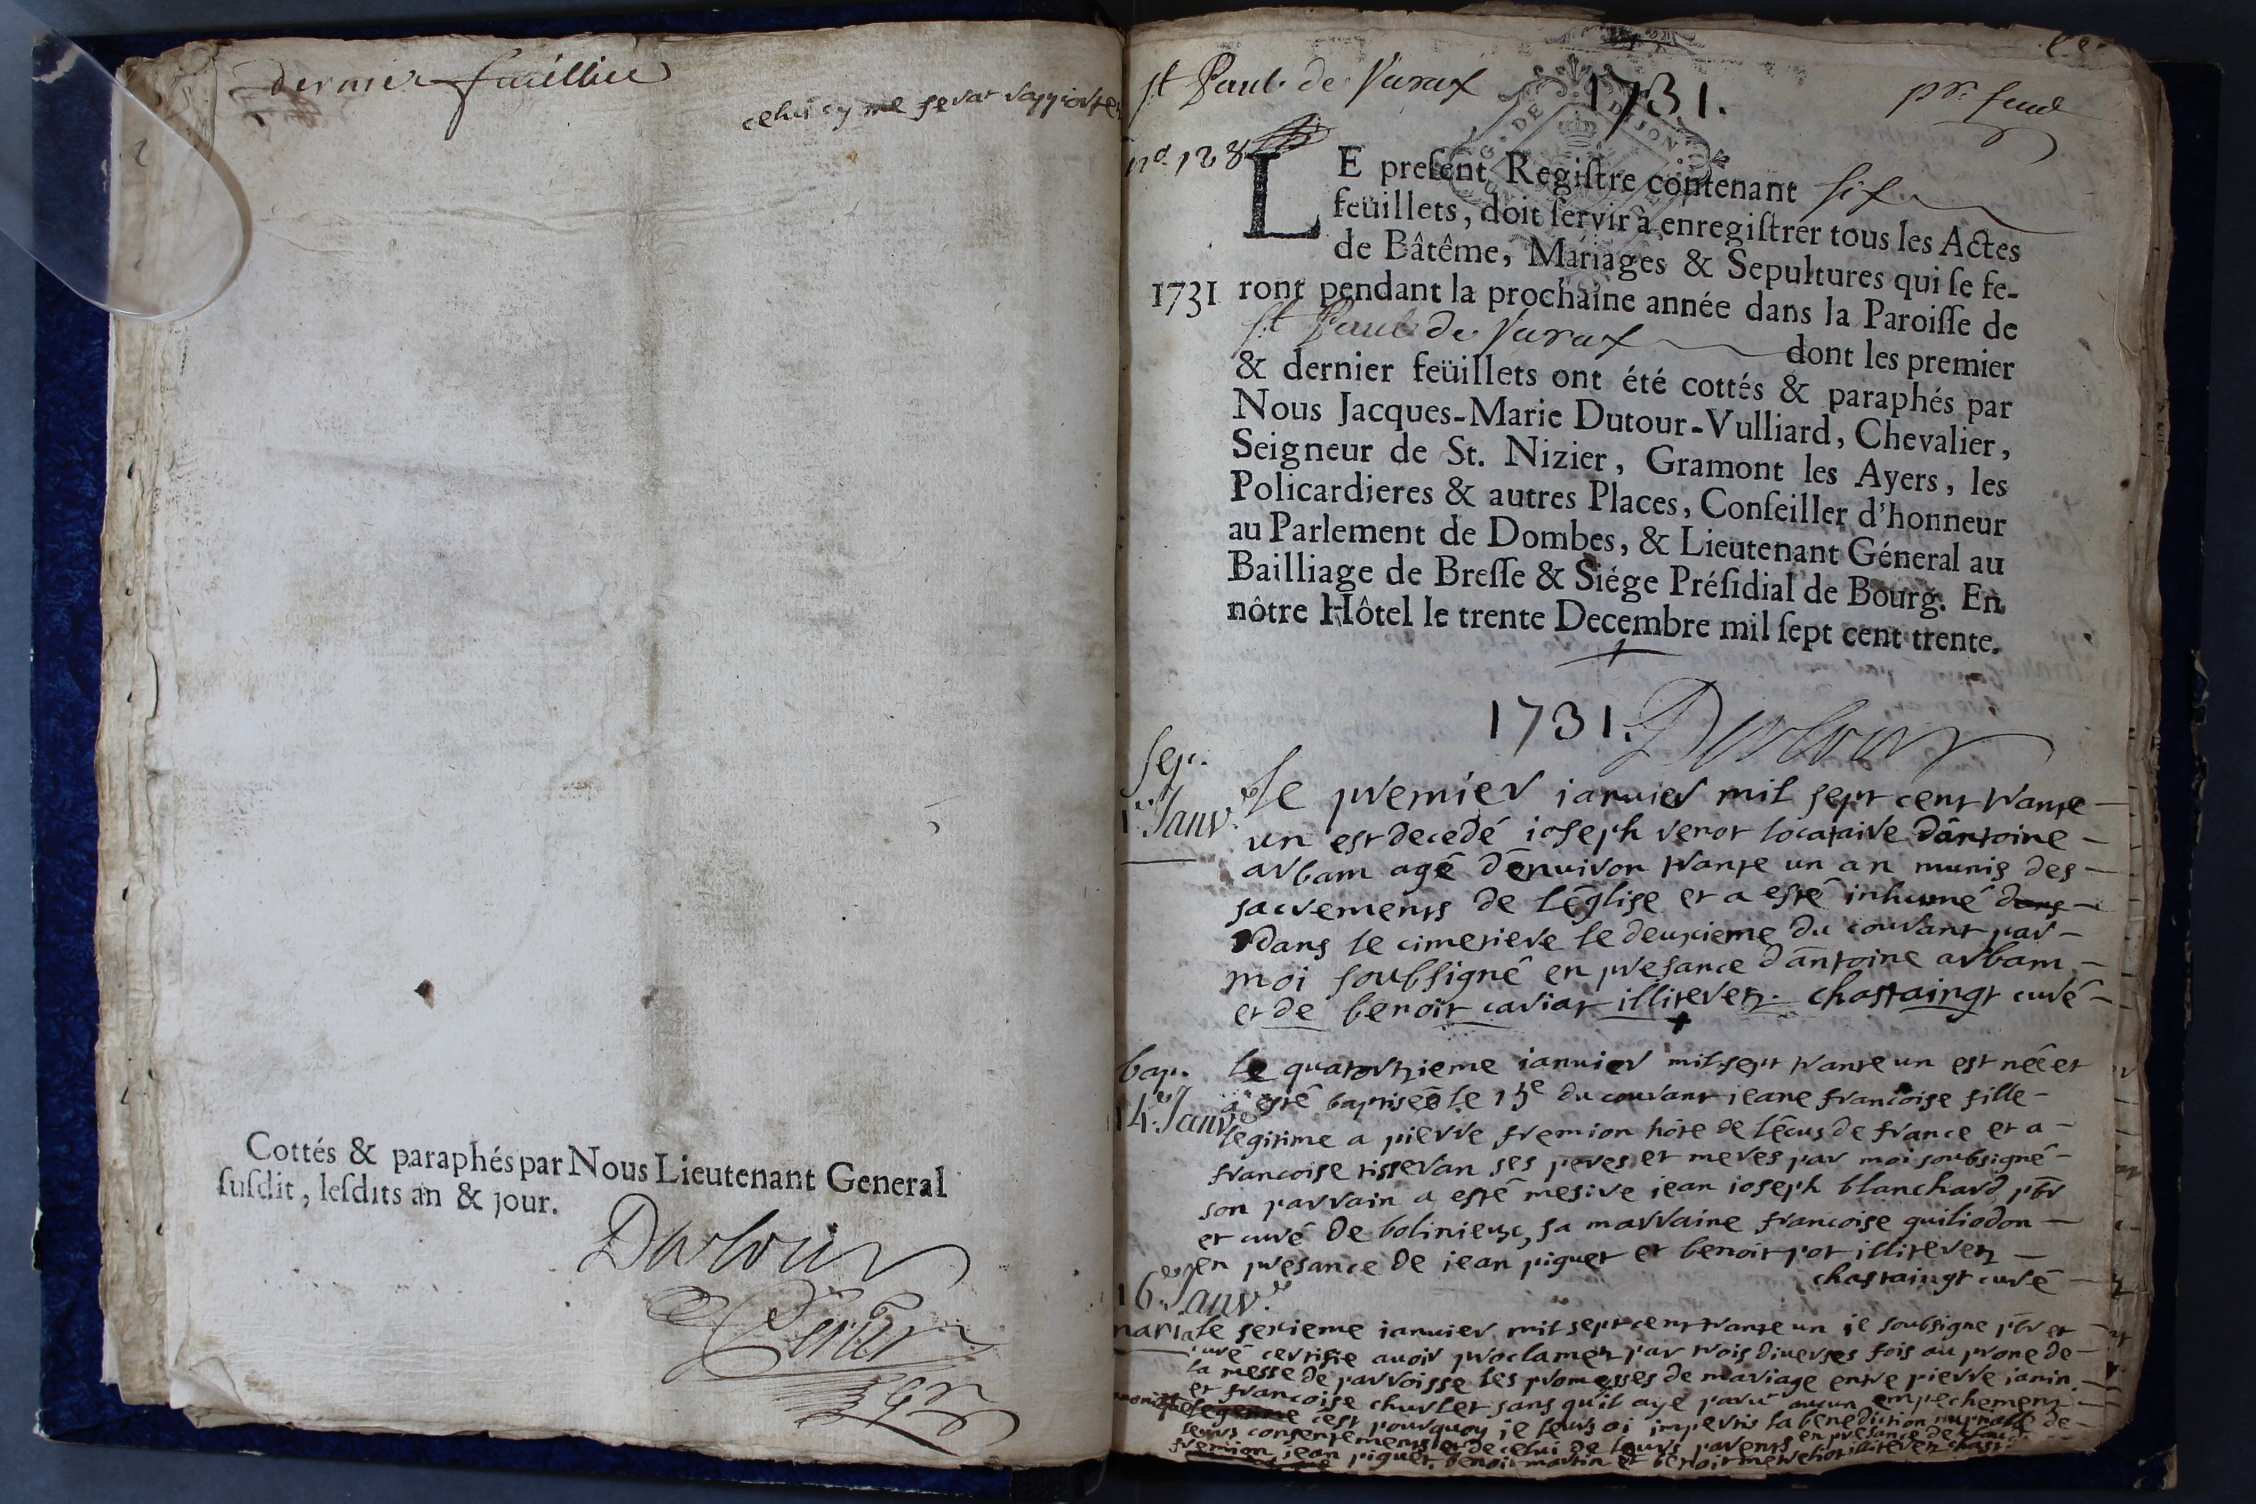 dernier feuillet
celui cy me serat rapporter
Cottés & paraphés par Nous Lieutenant General
suſdit, leſdits an & jour.
Dutour
St Paul de Varax
1731.
pr. feuil
no. 128
LE preſent Regiſtre contenant six
feüillets, doit ſervir à enregiſtrer tous les Actes
de Bâtême, Mariages & Sepultures qui ſe fe-
1731 ront pendant la prochaine année dans la Paroiſſe de
St Paul de Varax dont les premier
& dernier feüillets ont été cottés & paraphés par
Nous Jacques-Marie Dutour-Vulliard, Chevalier,
Seigneur de St. Nizier, Gramont les Ayers, les
Policardieres & autres Places, Conſeiller d'honneur
au Parlement de Dombes, & Lieutenant Géneral au
Bailliage de Breſſe & Siége Préſidial de Bourg. En
nôtre Hôtel le trente Decembre mil ſept cent trente.
1731. Dutour
sep.
1er Janv.
le premier ianvier mil sept cent trante
un est decedé ioseph verot locataire d'antoine
arbam agé d'enuiron trante un an munis des
sacrements de l'église et a esté inhumé dans
dans le cimetiere le deuxieme du courant par
moi soubsigné en presance d'antoine arbam
et de benoit caviat illiterez. chastaingt curé
bap.
14e Janv.
le quatorzieme ianvier mil sept trante un est néé et
a esté baptiséé le 15e du courant ieane francoise fille
legitime a pierre fremion hóte de l'écus de france et a
francoise tisseran ses peres et meres par moi soubsigné
son parrain a esté mesire iean ioseph blanchard pbr
et curé de bolinieux, sa marraine francoise quiliodon
en presance de iean piguet et benoit pot illiterez
chastaingt curé
16e Janv.
maria le sexieme ianvier mil sept cent trante un ie soubsigné pbr et
curé certifie avoir proclamez par trois diverses fois au prone de
la messe de parroisse les promesses de mariage entre pierre ianin
et francoise churlet sans qu'il aye paru aucun empechement
c'est pourquoy ie leurs ai imperti la benediction nuptialle de
leurs consentements et de celui de leurs parents en presance de
fremion iean piguet benoit martin et benoit illiterez chast